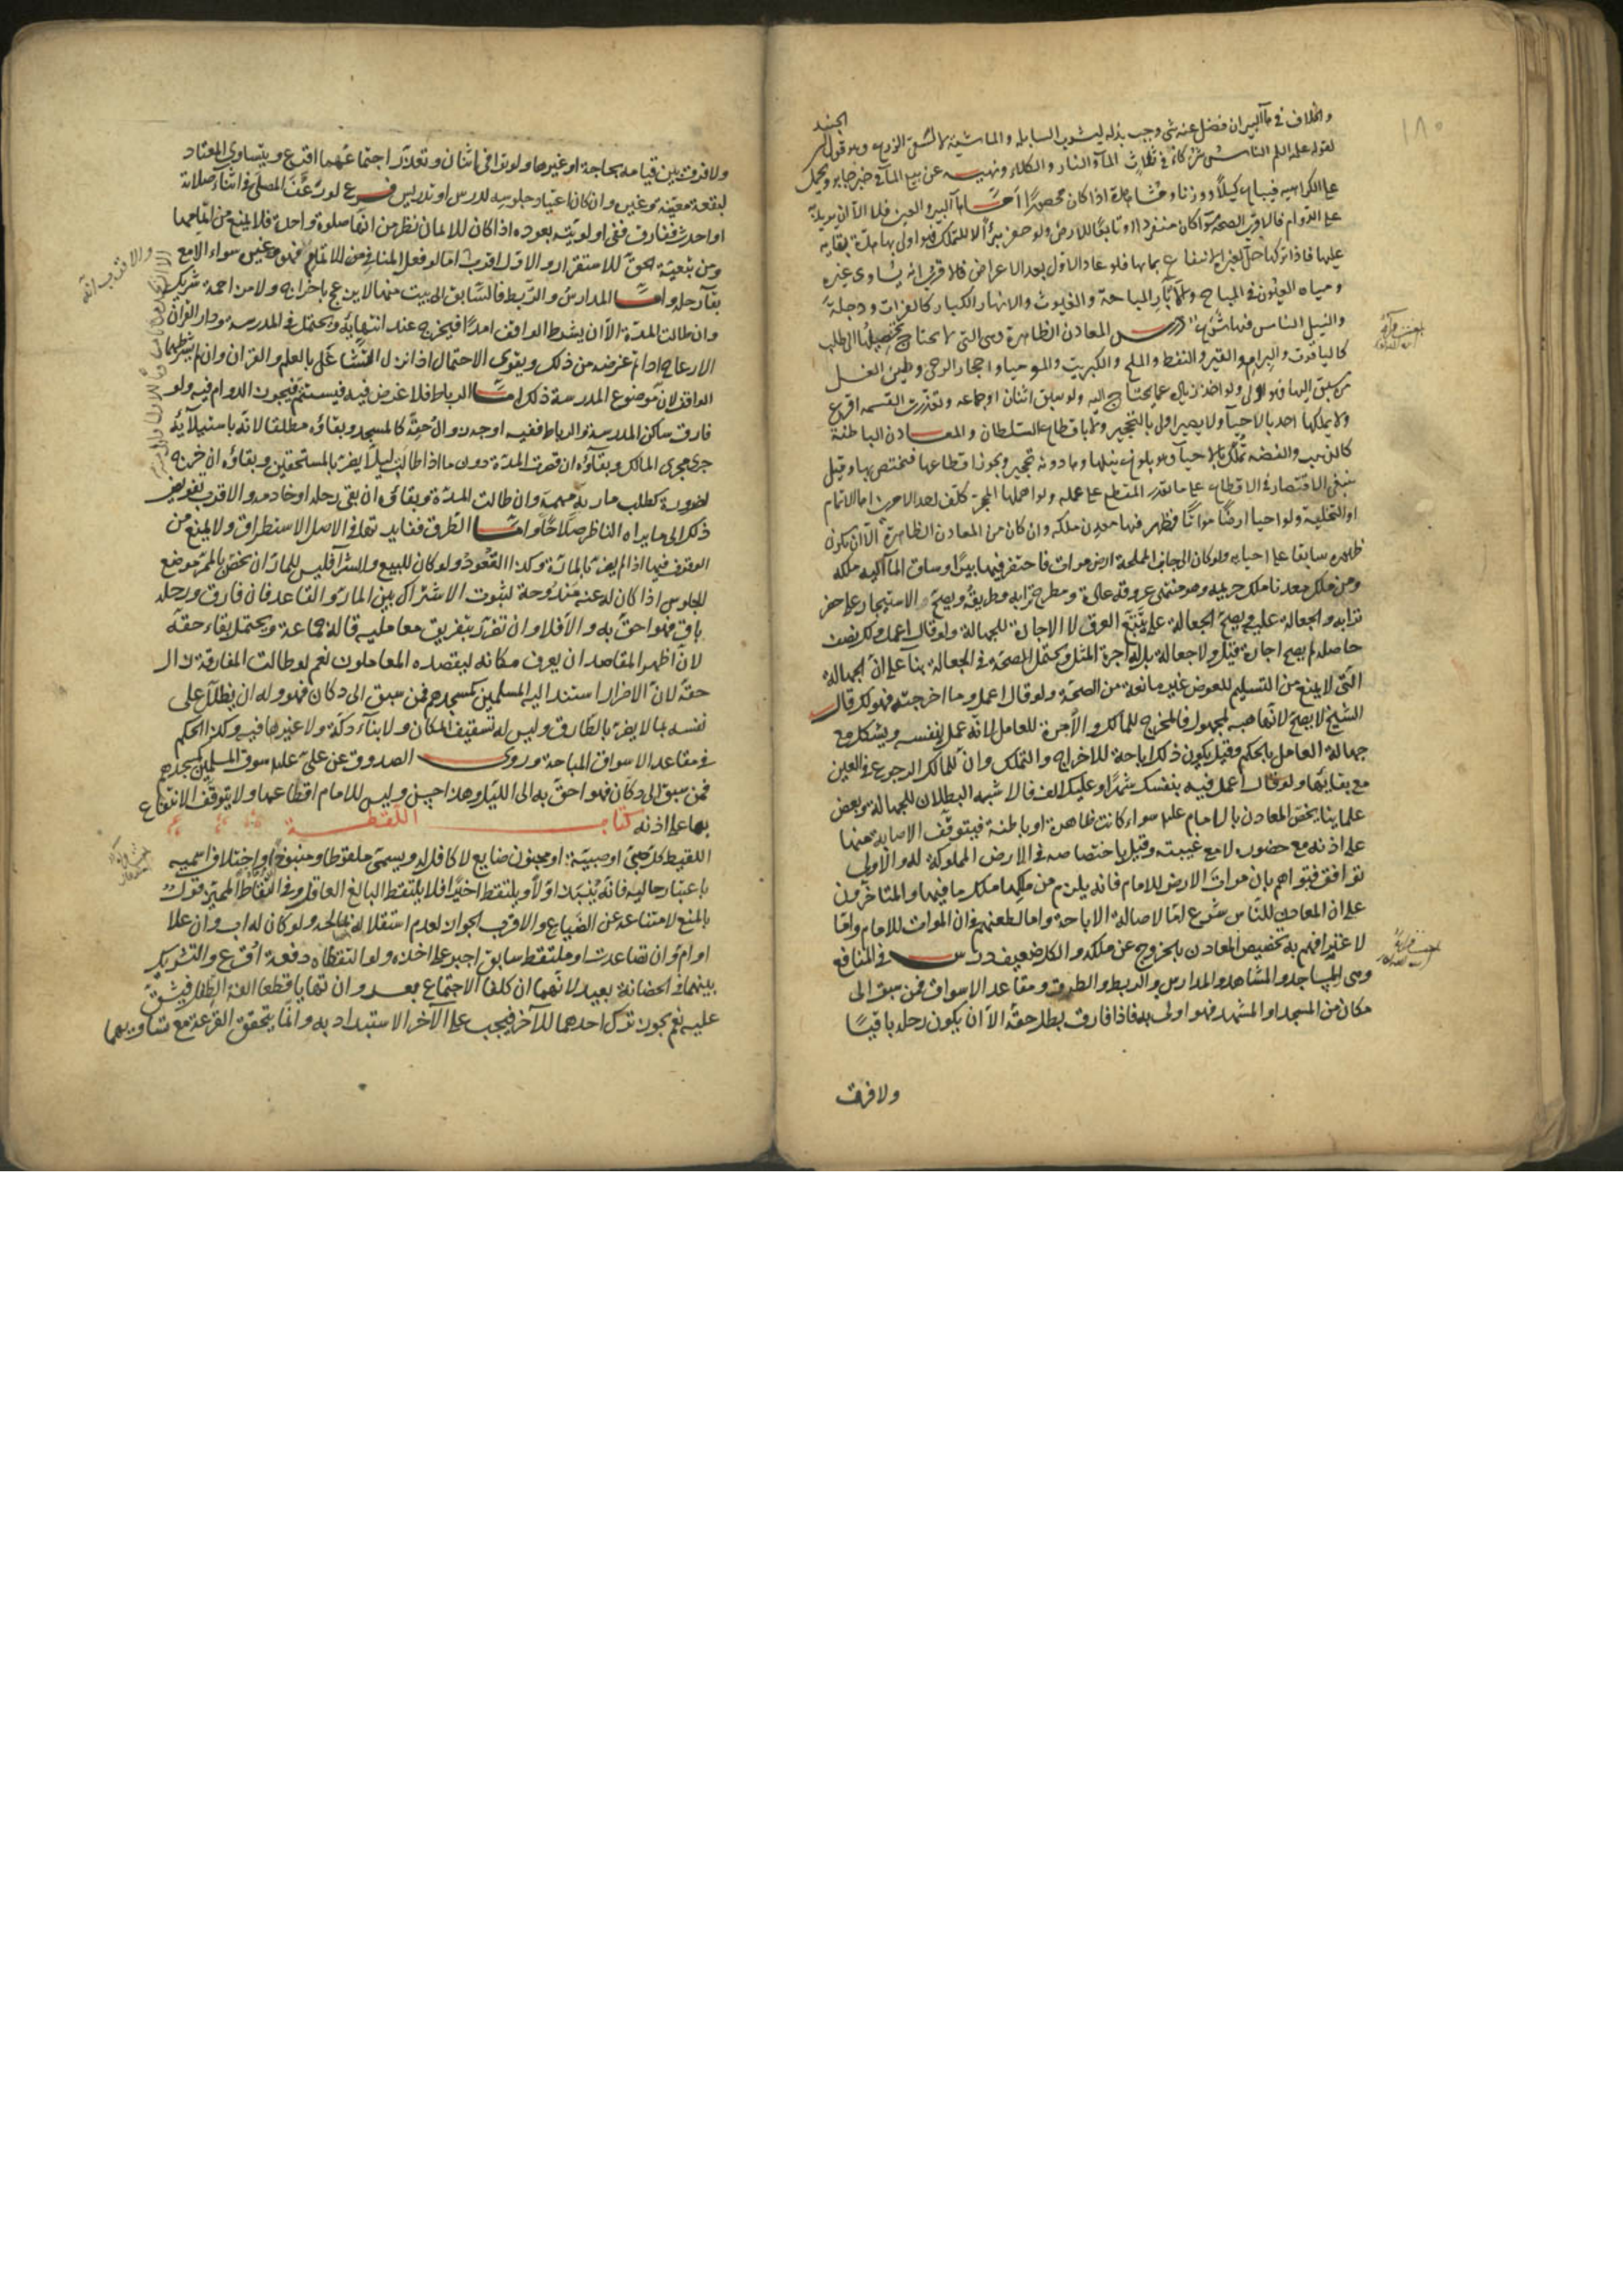 ١٨٠
والخلاف في ماء البئر ان فضل عنه شئ وجب بذله لشرب السابلة والماشية لا لسقي الزرع وهو قول ابن الجنيد
لقوله عليه السلم الناس شركاء في ثلاث الماء والنار والكلاء ونهيه عن بيع الماء في خبر جابر ويحمل
على الكراهية فيباع كيلا ووزنا ومشاهدة اذا كان محصورا اما ماء البئر والعين فلا الا ان يريد به
على الدوام فالاقرب الصحة سواء كان منفردا او تابعا للارض ولو حفر بئرا لا للتملك فهو اولى بها مدة بقائه
عليها فاذا تركها حل لغيره الانتفاع بمائها فلو عاد الاول بعد الاعراض فالاقرب انه يساوى غيره
ومياه العيون في المباح والآبار المباحة والغيوث والانهار الكبار كالفرات ودجلة
والنيل الناس فيها شرع درس المعادن الظاهرة وهي التي لا يحتاج تحصيلها الى طلب
كالياقوت والبرام والقير والنفط والملح والكبريت والموميا واحجار الرحى وطين الغسل
من سبق اليها فهو اولى ولو اخذ زيادة عما يحتاج اليه ولو سبق اثنان او جماعة وتعذرت القسمة اقرع
ولا يملكها احد بالاحياء ولا يصير اولى بالتحجير ولا باقطاع السلطان والمعادن الباطنة
كالذهب والفضة تملك بالاحياء وهو بلوغ نيلها وما دونه تحجير ويجوز اقطاعها فيختص بها وقيل
ينبغي الاقتصار في الاقطاع على ما يقدر المقطع على عمله ولو اهملها المحجر كلف احد الامرين اما الاتمام
او التخلية ولو احيا ارضا مواتا فظهر فيها معدن ملكه وان كان من المعادن الظاهرة الا ان يكون
ظهوره سابقا على احيائه ولو كان الى جانب المملحة ارض موات فاحتفر فيها بئرا وساق الماء اليه ملكه
ومن ملك معدنا ملك حريمه وهو منتهى عروقه عادة ومطرح ترابه وطريقه ويصح الاستيجار على حفر
ترابه والجعالة عليه ويصح الجعالة على تتبع العرق لا الاجارة للجهالة ولو قال اعمل ولك نصف
حاصله لم يصح اجارة قيل ولا جعالة بل له اجرة المثل ويحتمل الصحة في الجعالة بناء على ان الجهالة
التي لا يمنع من التسليم للعوض غير مانعة من الصحة ولو قال اعمل وما اخرجته فهو لك قال
الشيخ لا يصح لانها هبة لمجهول فالمخرج للمالك ولا اجرة للعامل لانه عمل لنفسه ويشكل مع
جهالة العامل بالحكم وقيل يكون ذلك اباحة للاخراج والتملك وان للمالك الرجوع في العين
مع بقائها ولو قال اعمل فيه بنفسك شهرا وعليك الف فالاشبه البطلان للجهالة وبعض
علمائنا يخص المعادن بالامام عليه السلام سواء كانت ظاهرة او باطنة فيتوقف الاصابة منها
على اذنه مع حضوره لا مع غيبته وقيل باختصاصه في الارض المملوكة له والاولى
توافق فتواهم بان موات الارض للامام فانه يلزم من ملكها ملك ما فيها والمتأخرون
على ان المعادن للناس شرع اما لاصالة الاباحة واما لطعنهم في ان الموات للامام واما
لاعترافهم به وتخصيص المعادن بالخروج عن ملكه والكل ضعيف درس في المنافع
وهي المساجد والمشاهد والمدارس والربط والطرق ومقاعد الاسواق فمن سبق الى
مكان من المسجد او المشهد فهو اولى به فاذا فارق بطل حقه الا ان يكون رحله باقيا
ولا فرق
ولا فرق بين قيامه لحاجة او غيرها ولو توافى اثنان وتعذر اجتماعهما اقرع ويتساوى المعتاد
لبقعة معينة وغيره وان كان اعتياد جلوسه لدرس او تدريس فرع لو رعف المصلى في اثناء صلاته
او احدث ففارق ففي اولويته بعوده اذا كان للامان نظر من انها صلوة واحدة فلا يمنع من اتمامها
ومن تبعية الحق للاستقرار والاول اقرب اما لو فعل المنافي من الاتمام فهو وغيره سواء الا مع
بقاء رحله واما المدارس والربط فالسابق الى بيت منها لا يزعج باخراجه ولا مزاحمة شريك
وان طالت المدة الا ان يشترط الواقف امدا فيخرج عند انتهائه ويحتمل في المدرسة ودار القران
الازعاج اذا تم غرضه من ذلك ويقوى الاحتمال اذا ترك التشاغل بالعلم والقران وان لم يشترطهما
الواقف لان موضوع المدرسة ذلك اما الرباط فلا غرض فيه فيستتم فيجوز الدوام فيه ولو
فارق ساكن المدرسة والرباط ففيه اوجه زوال حقه كالمسجد وبقاؤه مطلقا لانه باستيلائه
جرى مجرى المالك وبقاؤه ان قصرت المدة دون ما اذا طالت ليلا يضر بالمستحقين وبقاؤه ان خرج
لضرورة كطلب ماربة مهمة وان طالت المدة وبقاؤه ان بقي رحله او خادمه والاقرب تفويض
ذلك الى ما يراه الناظر صلاحا واما الطرق ففائدتها في الاصل الاستطراق ولا يمنع من
الوقوف فيها اذا لم يضر بالمارة وكذا القعود ولو كان للبيع والشراء فليس للمار ان يختص بالممر موضع
الجلوس اذا كان له عنه مندوحة لثبوت الاشتراك بين المار والقاعد فان فارق ورحله
باق فهو احق به والا فلا وان تضرر بتفريق معامليه قاله جماعة ويحتمل بقاء حقه
لان اظهر المقاصد ان يعرف مكانه ليقصده المعاملون نعم لو طالت المفارقة زال
حقه لان الاضرار استند اليه المسلمين كمسجدهم فمن سبق الى دكان فهو وله ان يظلل على
نفسه بما لا يضر بالطارق وليس له تسقيف المكان ولا بناء دكة ولا غيرها فيه وكذا الحكم
في مقاعد الاسواق المباحة وروى الصدوق عن علي عليه السلام سوق المسلمين كمسجدهم
فمن سبق الى دكان فهو احق به الى الليل وهذا حسن وليس للامام اقطاعها ولا يتوقف الانتفاع
بها على اذنه كتاب اللقطة
اللقيط كل صبي او صبية او مجنون ضايع لا كافل له ويسمى ملقوطا ومنبوذا واختلاف اسميه
باعتبار حاليه فانه ينبذ اولا ويلتقط اخيرا فلا يلتقط البالغ العاقل وفي التقاط المميز قول
بالمنع لامتناعه عن الضياع والاقرب الجواز لعدم استقلاله بنفسه ولو كان له اب وان علا
او ام وان تصاعدت او ملتقط سابق اجبر على اخذه ولو التقطاه دفعة اقرع والتشريك
بينهما في الحضانة بعيد لانهما ان كلفا الاجتماع بعد وان تهايا قطعا الفة الطفل فيشق
عليه نعم يجوز ترك احدهما للآخر فيجب على الآخر الاستبداد به وانما يتحقق القرعة مع تساويهما